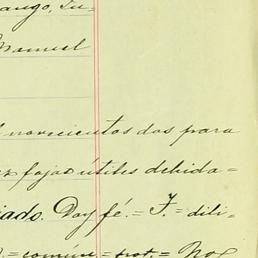 ango, Lu-
Manuel
novecientos dos para
fojas útiles debida=
iado. Doy fé.= F.= dili-
).= común= prot.= Nos